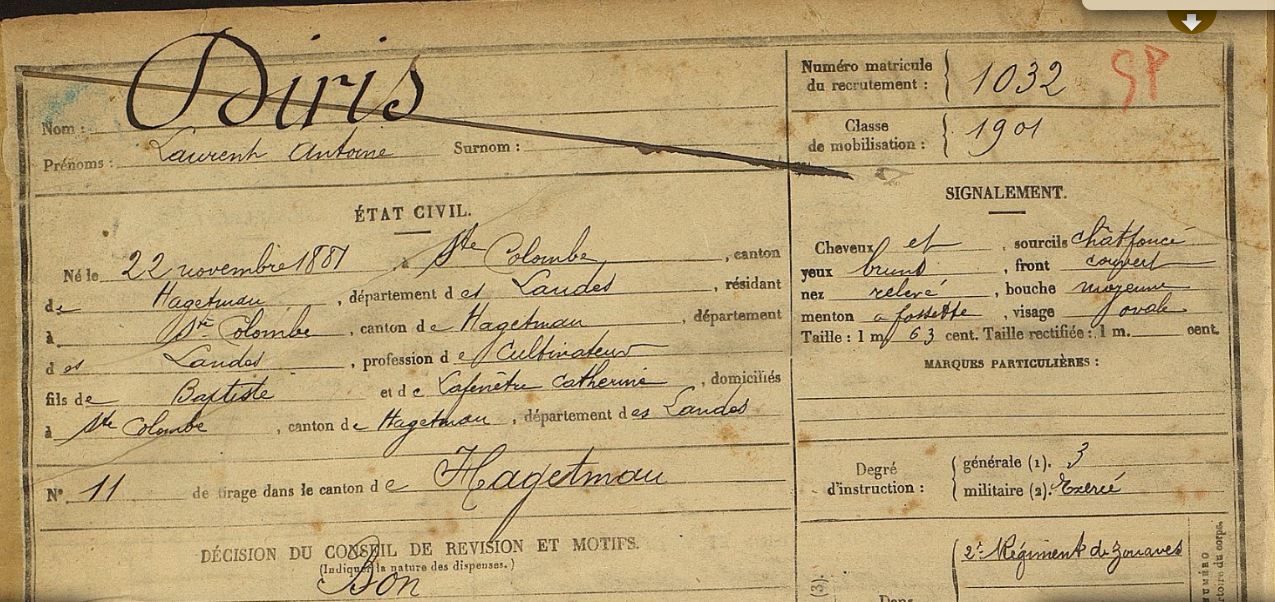 Nom : Diris
Prénoms : Laurent Antoine Surnom :
Numéro matricule
du recrutement : 1032 SP
Classe
de mobilisation : 1901
ÉTAT CIVIL.
Né le 22 novembre 1881 à Ste Colombe, canton
de Hagetmau, département des Landes, résidant
à Ste Colombe, canton de Hagetmau, département
des Landes, profession de Cultivateur
fils de Baptiste et de Lafenêtre Catherine, domiciliés
à Ste Colombe, canton de Hagetmau, département des Landes
N° 11 de tirage dans le canton de Hagetmau
DÉCISION DU CONSEIL DE REVISION ET MOTIFS.
(Indiquer la nature des dispenses.)
Bon
SIGNALEMENT.
Cheveux et, sourcils chât foncé
yeux bruns, front couvert
nez relevé, bouche moyenne
menton à fossette, visage ovale
Taille : 1 m. 63 cent. Taille rectifiée : 1 m. cent.
MARQUES PARTICULIÈRES :
Degré
d'instruction :
générale (1). 3
militaire (2). Exercé
2e Régiment de Zouaves
(3).
Dans
NUMÉRO